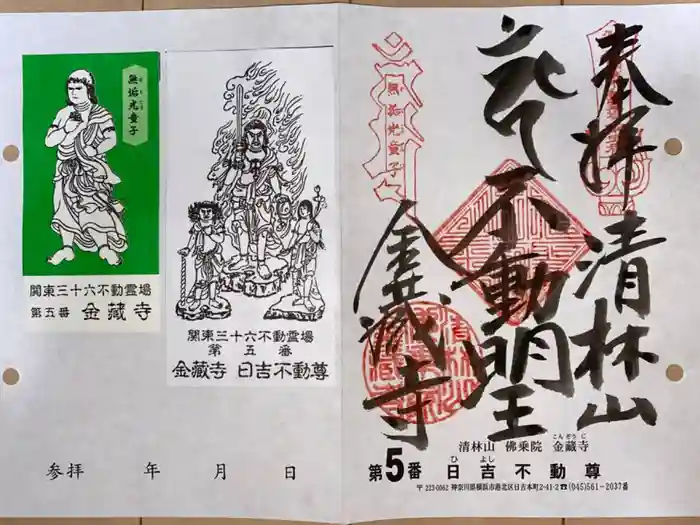 無垢光童子
むくこうどうじ
関東三十六不動霊場
第五番 金藏寺
関東三十六不動霊場
第五番
金藏寺 日吉不動尊
参拝 年 月 日
奉拝
清林山
不動明王
金藏寺
無垢光童子
清林山 佛乗院 金藏寺
こんぞうじ
第5番 日吉不動尊
ひよし
〒223-0062 神奈川県横浜市港北区日吉本町2-41-2☎(045)561-2037番